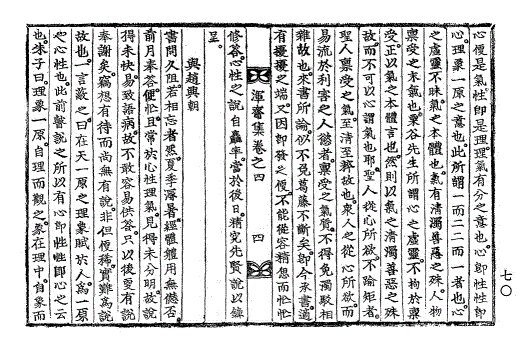 心便是氣性卽是理理氣有分之意也心卽性性卽
心理象一原之意也此所謂一而二二而一者也心
之虛靈不昧氣之本體也氣有清濁善惡之殊人物
稟受之末氣也栗谷先生所謂心之虛靈不拘於稟
受正以氣之本體言也然則以氣之清濁善惡之殊
故而不可以心謂氣也耶聖人從心所欲不踰矩者
聖人稟受之氣至清至粹故也衆人之從心所欲而
易流於利害之人慾者稟受之氣質不得免濁駁相
雜故也來書所論似不免葛藤不斷矣卽今承書適
有擾擾之端又因卽發之便不能從容精思而忙忙
修答心性之說自是年當於後日精究先賢說以歸
呈
渾齋集卷之四 四
與趙興朝
書問久阻若相忘者然夏季溽暑經體體用無憊否
前月奉答便忙且常於心性理氣見得未分明故說
得未快易致語病故不敢容易供答只以後更有說
奉謝矣竊想有待而尚無有說非但便稀實難爲說
故也一言蔽之曰在天一原之理象賦於人爲一原
之心性也此前聲說之所以有心卽性性卽心之云
也朱子曰理象一原自理而觀之象在理中自象而
七〇